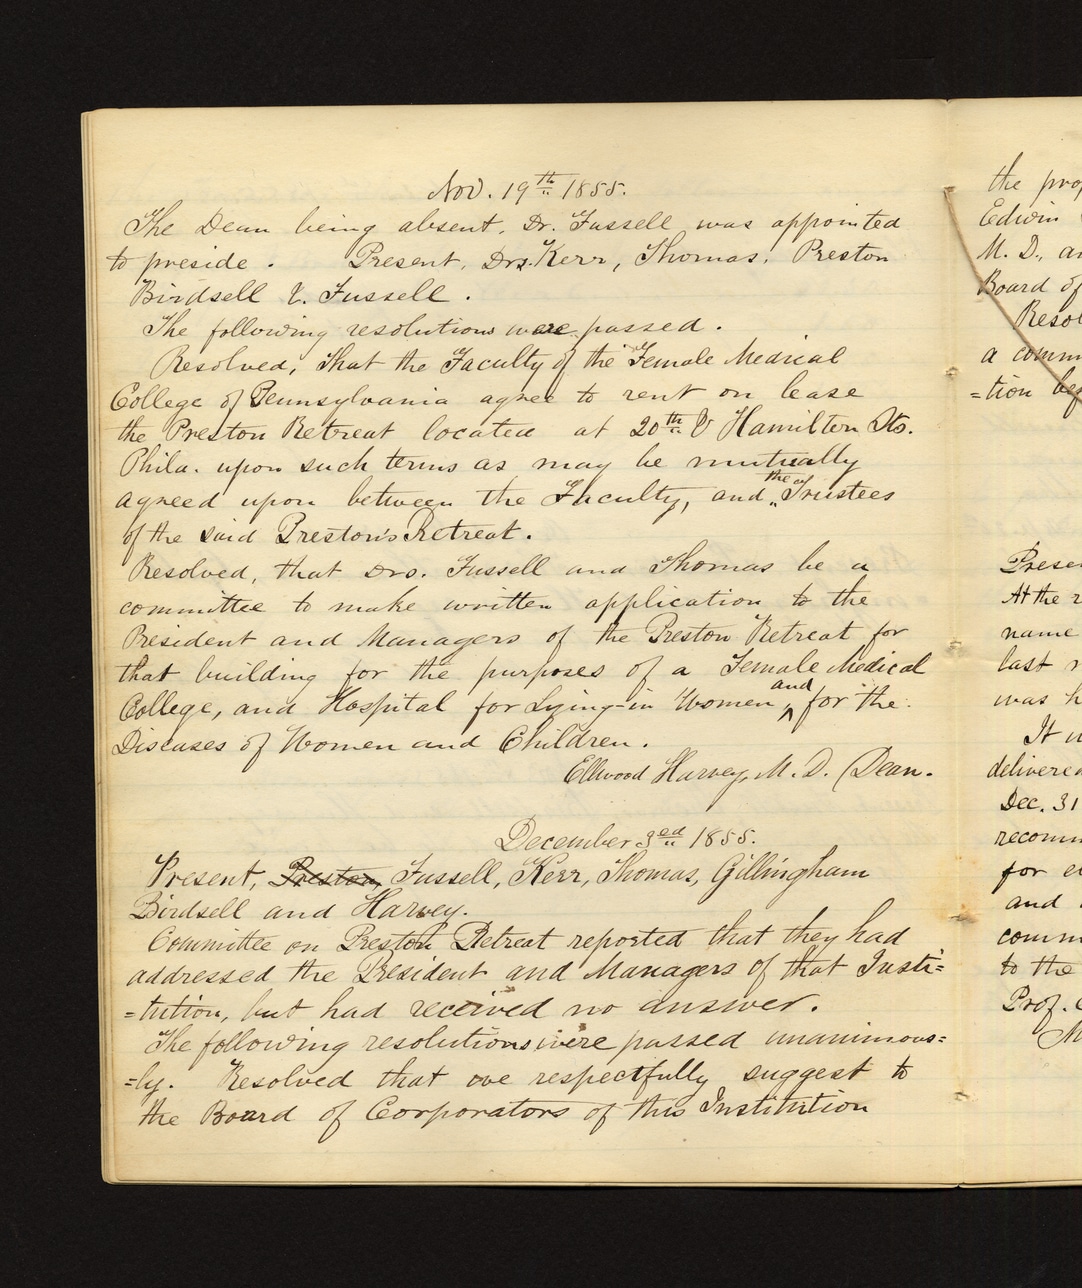 Nov. 19th 1855.
The Dean being absent, Dr. Fussell was appointed
to preside. Present, Drs. Kerr, Thomas, Preston
Birdsell & Fussell.
The following resolutions were passed.
Resolved, That the Faculty of the Female Medical
College of Pennsylvania agree to rent on lease
the Preston Retreat located at 20th & Hamilton Sts.
Phila. upon such terms as may be mutually
agreed upon between the Faculty, and the Trustees
of the said Preston's Retreat.
Resolved, that Drs. Fussell and Thomas be a
committee to make written application to the
President and Managers of the Preston Retreat for
that building for the purposes of a Female Medical
College, and Hospital for Lying-in Women and for the
Diseases of Women and Children.
Ellwood Harvey, M. D. Dean.
December 3ed 1855.
Present, Preston, Fussell, Kerr, Thomas, Gillingham
Birdsell and Harvey.
Committee on Preston Retreat reported that they had
addressed the President and Managers of that Insti=
=tution, but had received no answer.
The following resolutions were passed unanimous=
=ly. Resolved that we respectfully suggest to
the Board of Corporators of this Institution
the
Edwin
M. D.,
Board of
a
=tion
At the
name
last
was
It
delivered
Dec. 31
for
and
to the
Prof.